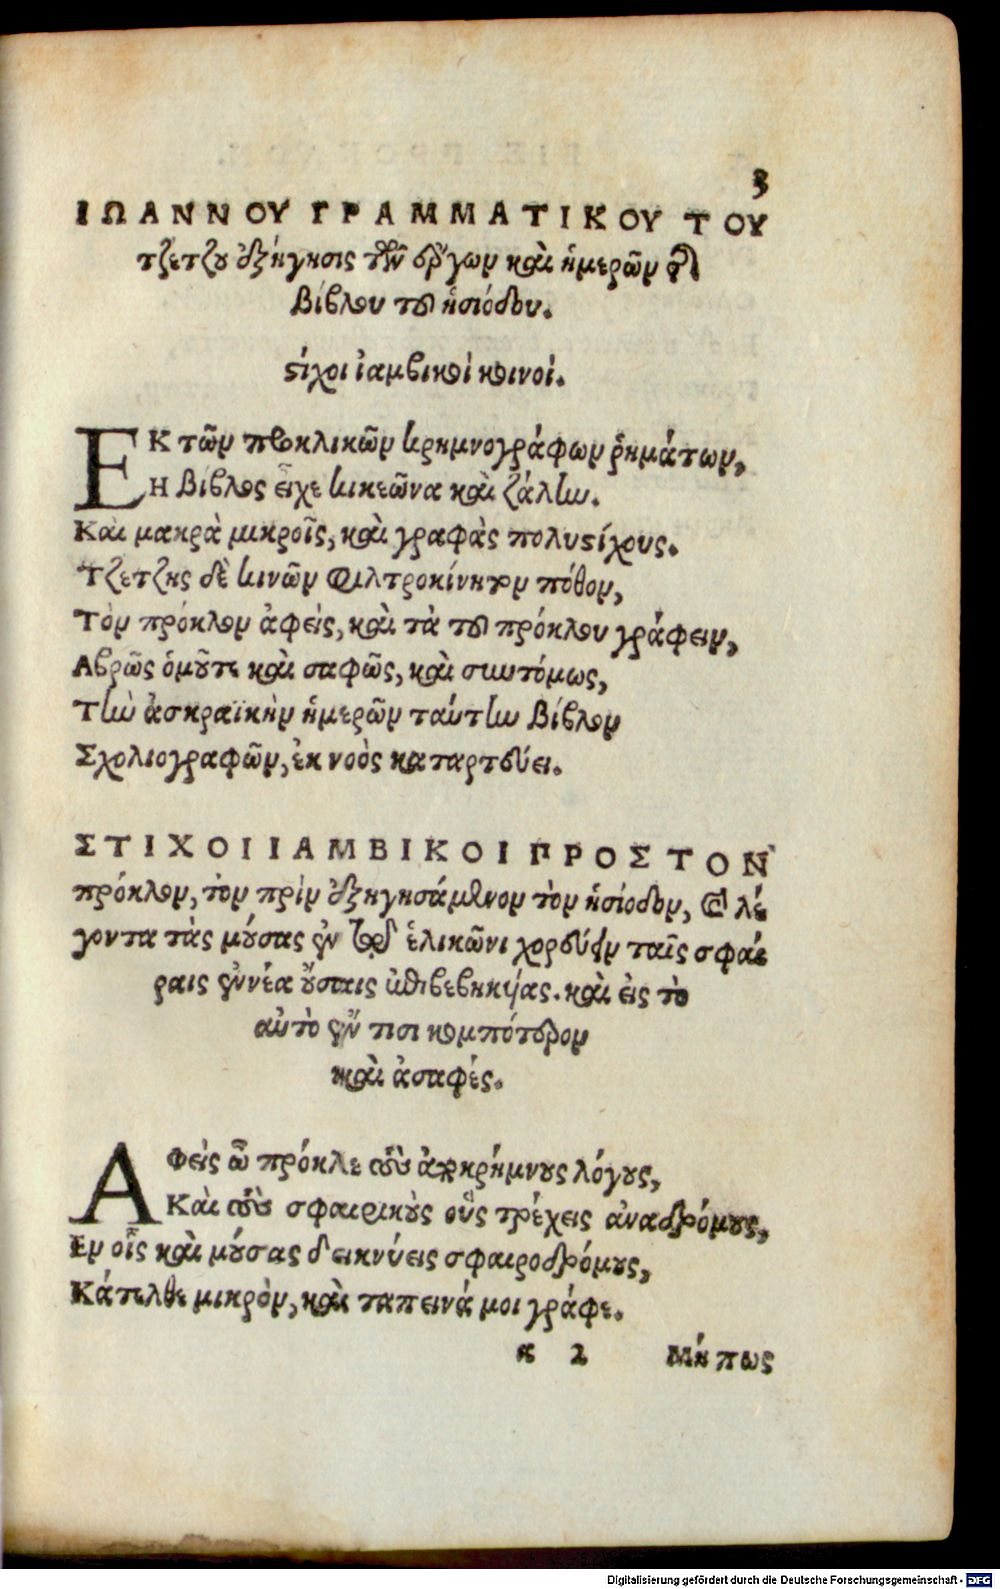 3
ΙΩΑΝΝΟΥ ΓΡΑΜΜΑΤΙΚΟΥ ΤΟΥ
τζέτζου ἐξήγησις τῶν ἔργων καὶ ἡμερῶν τῆς
βίβλου τοῦ ἡσιόδου.
ϛίχοι ἰαμβικοὶ κοινοί.
ΕΚ τῶν προκλικῶν κρημνογράφων ῥημάτων,
Η βίβλος εἶχε κυκεῶνα καὶ ζάλην.
Καὶ μακρὰ μικροῖς, καὶ γραφὰς πολυϛίχους.
Τζέτζης δὲ κινῶν φιλτροκίνητον πόθον,
Τὸν πρόκλον ἀφεὶς, καὶ τὰ τοῦ πρόκλου γράφειν,
Αβρῶς ὁμοῦτε καὶ σαφῶς, καὶ συντόμως,
Τὴν ἀσκραϊκὴν ἡμερῶν ταύτην βίβλον
Σχολιογραφῶν, ἐκ νοὸς καταρτεύει.
ΣΤΙΧΟΙ ΙΑΜΒΙΚΟΙ ΠΡΟΣ ΤΟΝ
πρόκλον, τὸν πρὶν ἐξηγησάμενον τὸν ἡσίοδον, καὶ λέ
γοντα τὰς μούσας ἐν τῷ ἑλικῶνι χορεύειν ταῖς σφαί
ραις ἐννέα οὔσαις ἐπιβεβηκυίας. καὶ εἰς τὸ
αὐτὸ ἔν τισι κομπότερον
καὶ ἀσαφές.
Αφεὶς ὦ πρόκλε τοὺς ἀποκρήμνους λόγους,
Καὶ τοὺς σφαιρικοὺς οὓς τρέχεις ἀναδρόμους,
Εν οἷς καὶ μούσας δεικνύεις σφαιροδρόμους,
Κάτελθε μικρὸν, καὶ ταπεινά μοι γράφε.
κ 2 Μήπως
Digitalisierung gefördert durch die Deutsche Forschungsgemeinschaft - DFG